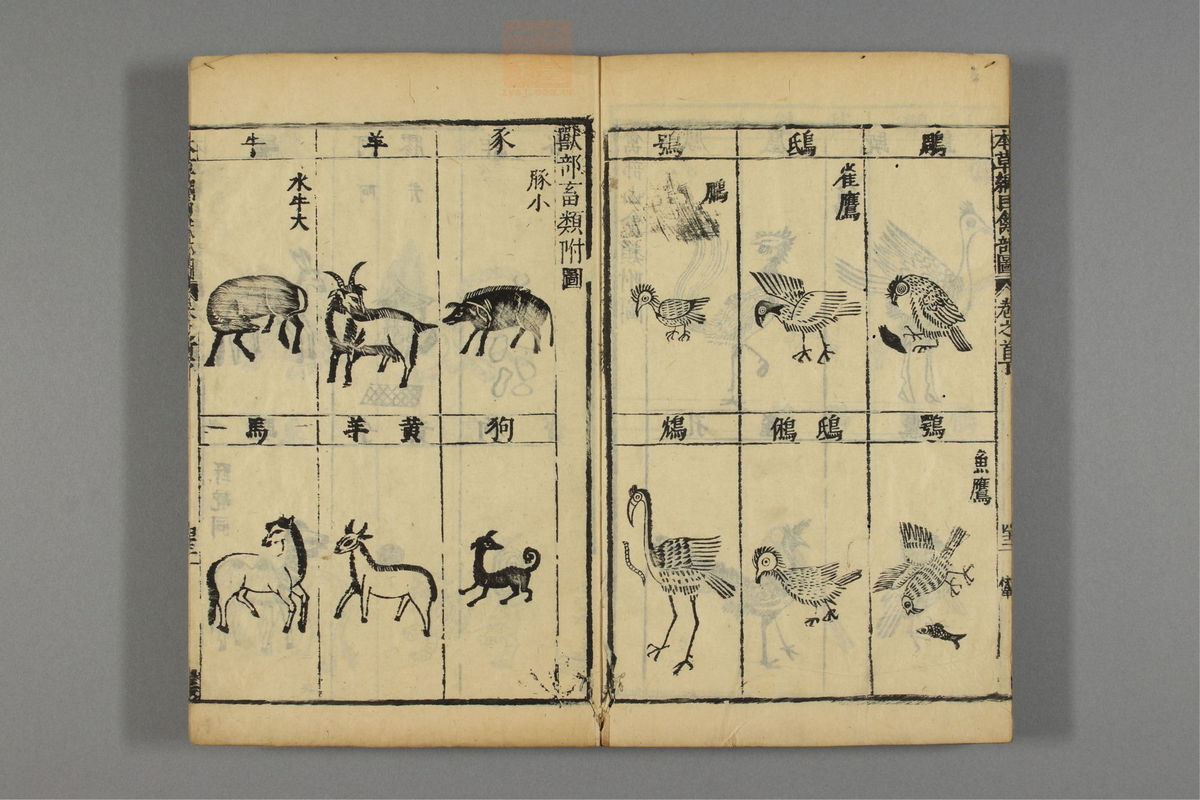 本草綱目禽部圖
卷之首下
鵰
鴟
鴞
雀鷹
鵩
鶚
鴟鵂
鴆
魚鷹
獸部畜類附圖
豕
羊
牛
豚小
水牛大
狗
黃羊
馬